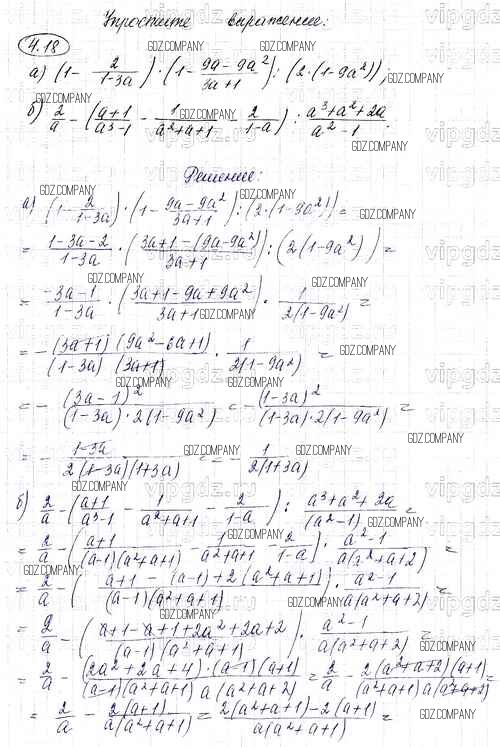 Упростите выражение:
4.18
а) (1 - 2/(1-3a)) · (1 - (9a-9a²)/(3a+1)) : (2·(1-9a²));
б) 2/a - ((a+1)/(a³-1) - 1/(a²+a+1) - 2/(1-a)) : (a³+a²+2a)/(a²-1).
Решение:
а) (1 - 2/(1-3a)) · (1 - (9a-9a²)/(3a+1)) : (2·(1-9a²)) =
= (1-3a-2)/(1-3a) · ((3a+1-(9a-9a²))/(3a+1)) : (2(1-9a²)) =
= (-3a-1)/(1-3a) · ((3a+1-9a+9a²)/(3a+1)) · 1/(2(1-9a²)) =
= - ((3a+1)(9a²-6a+1))/((1-3a)(3a+1)) · 1/(2(1-9a²)) =
= - (3a-1)²/((1-3a)·2(1-9a²)) = - (1-3a)²/((1-3a)·2(1-9a²)) =
= - (1-3a)/(2(1-3a)(1+3a)) = - 1/(2(1+3a))
б) 2/a - ((a+1)/(a³-1) - 1/(a²+a+1) - 2/(1-a)) : (a³+a²+2a)/(a²-1) =
= 2/a - ((a+1)/((a-1)(a²+a+1)) - 1/(a²+a+1) - 2/(1-a)) · (a²-1)/(a(a²+a+2)) =
= 2/a - ((a+1-(a-1)+2(a²+a+1))/((a-1)(a²+a+1))) · (a²-1)/(a(a²+a+2)) =
= 2/a - ((a+1-a+1+2a²+2a+2)/((a-1)(a²+a+1))) · (a²-1)/(a(a²+a+2)) =
= 2/a - ((2a²+2a+4)·(a-1)(a+1))/((a-1)(a²+a+1)a(a²+a+2)) = 2/a - (2(a²+a+2)(a+1))/((a²+a+1)a(a²+a+2)) =
= 2/a - 2(a+1)/(a(a²+a+1)) = (2(a²+a+1)-2(a+1))/(a(a²+a+1)) =
GDZ.COMPANY
vipgdz.ru